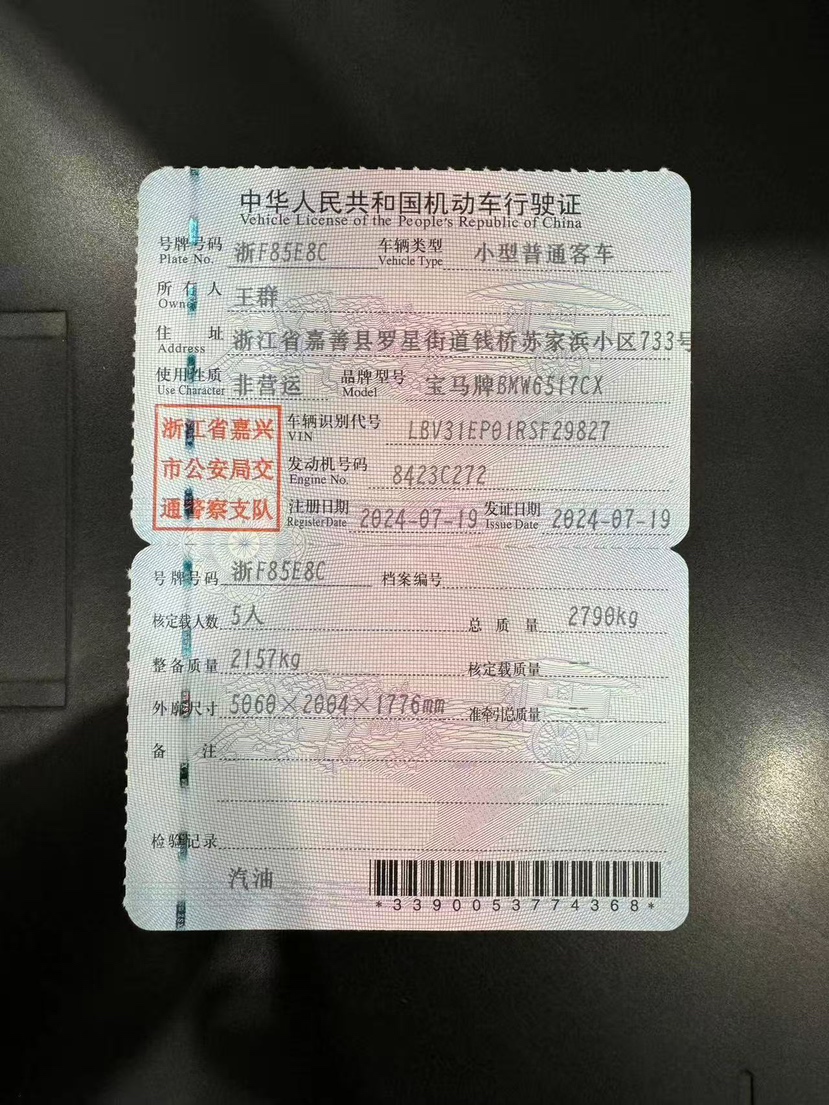 中华人民共和国机动车行驶证
Vehicle License of the People's Republic of China
号牌号码 Plate No. 浙F85E8C 车辆类型 Vehicle Type 小型普通客车
所有人 Owner 王群
住址 Address 浙江省嘉善县罗星街道钱桥苏家浜小区733号
使用性质 Use Character 非营运 品牌型号 Model 宝马牌BMW6517CX
浙江省嘉兴
市公安局交
通警察支队
车辆识别代号 VIN LBV31EP01RSF29827
发动机号码 Engine No. 8423C272
注册日期 Register Date 2024-07-19 发证日期 Issue Date 2024-07-19
号牌号码 浙F85E8C 档案编号
核定载人数 5人 总质量 2790kg
整备质量 2157kg 核定载质量 --
外廓尺寸 5060×2004×1776mm 准牵引总质量 --
备注
检验记录
汽油
*3390053774368*